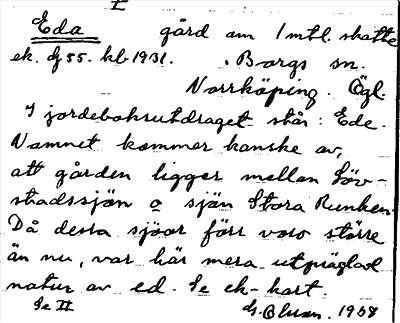 I
Eda gård om 1 mtl. skatte
ek. dj 55. kb 1931. Borgs sn.
Norrköping. Ögl.
I jordeboksutdraget står: Ede.
Namnet kommer kanske av,
att gården ligger mellan Löv-
stadssjön o sjön Stora Runken.
Då dessa sjöar förr voro större
än nu, var här mera utpräglad
natur av ed. Se ek-kart.
Se II G. Olson. 1938